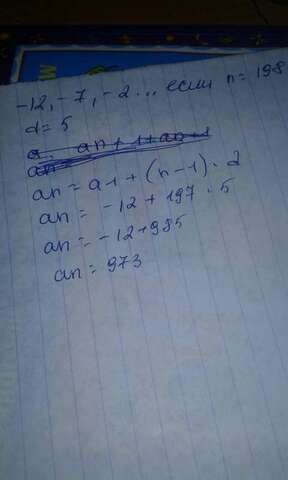 -12, -7, -2... если n = 198
d = 5
an = a1 + (n-1) · d
an = -12 + 197 · 5
an = -12+985
an = 973